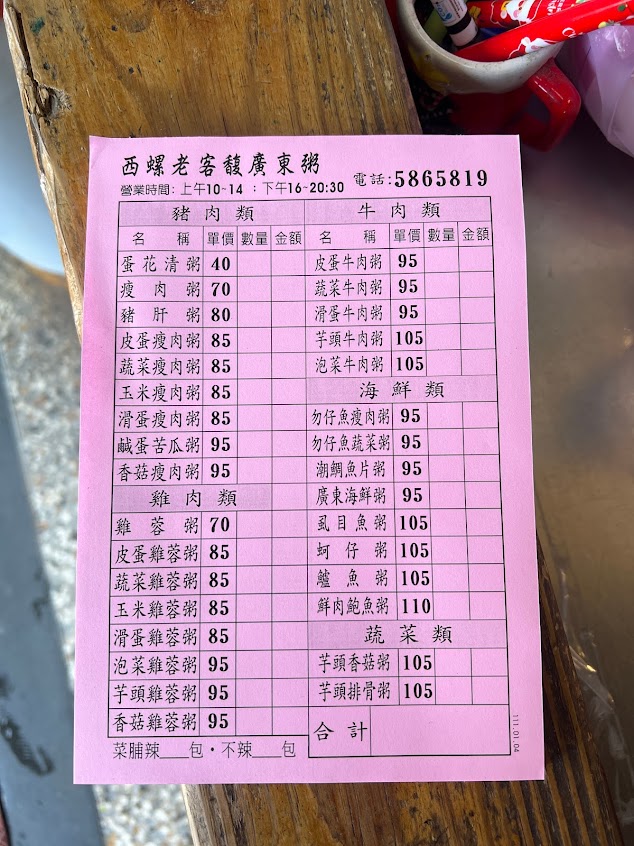 西螺老客馥廣東粥
營業時間: 上午10~14 : 下午16~20:30
電話:5865819
豬肉類
名稱 單價 數量 金額
蛋花清粥 40
瘦肉粥 70
豬肝粥 80
皮蛋瘦肉粥 85
蔬菜瘦肉粥 85
玉米瘦肉粥 85
滑蛋瘦肉粥 85
鹹蛋苦瓜粥 95
香菇瘦肉粥 95
雞肉類
雞蓉粥 70
皮蛋雞蓉粥 85
蔬菜雞蓉粥 85
玉米雞蓉粥 85
滑蛋雞蓉粥 85
泡菜雞蓉粥 95
芋頭雞蓉粥 95
香菇雞蓉粥 95
菜脯辣___包·不辣___包
牛肉類
名稱 單價 數量 金額
皮蛋牛肉粥 95
蔬菜牛肉粥 95
滑蛋牛肉粥 95
芋頭牛肉粥 105
泡菜牛肉粥 105
海鮮類
勿仔魚瘦肉粥 95
勿仔魚蔬菜粥 95
潮鯛魚片粥 95
廣東海鮮粥 95
虱目魚粥 105
蚵仔粥 105
鱸魚粥 105
鮮肉鮑魚粥 110
蔬菜類
芋頭香菇粥 105
芋頭排骨粥 105
合計
111.01.04